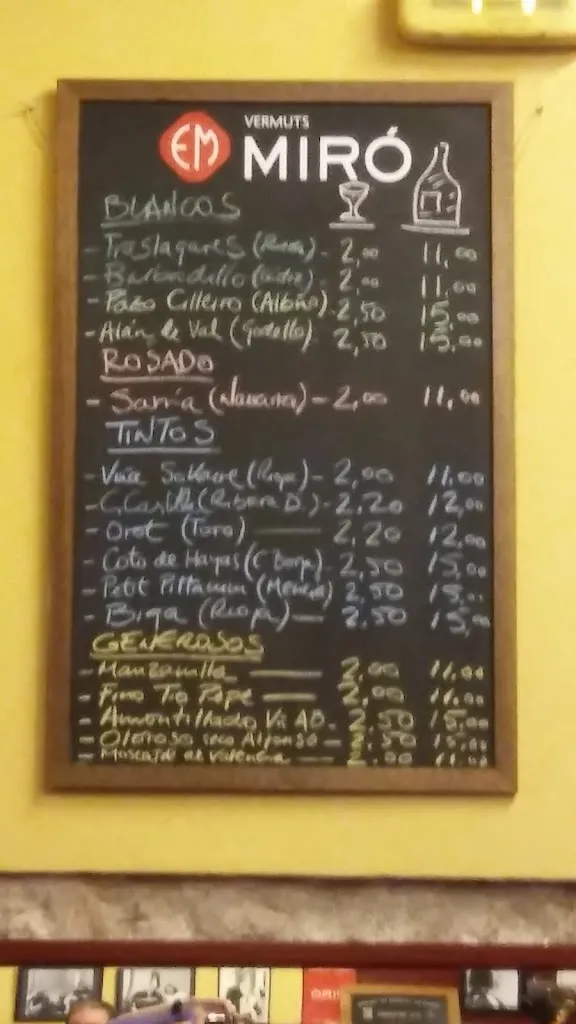 EM VERMUTS
MIRÓ
BLANCOS
- Traslagares (Rueda) - 2,00 11,00
- Barbadillo (Cádiz) - 2,00 11,00
- Pazo Cilleiro (Albiño) - 2,50 15,00
- Alán de Val (Godello) 2,50 15,00
ROSADO
- Sarría (Navarra) - 2,00 11,00
TINTOS
- Viña (Rioja) - 2,00 11,00
- (Ribera D.) - 2,20 12,00
- Orot (Toro) — 2,20 12,00
- Coto de Hayas (C Borja) - 2,50 15,00
- Petit Pittacum (Mencía) 2,50 15,00
- Biga (Rioja) — 2,50 15,00
GENEROSOS
- Manzanilla — 2,00 11,00
- Fino Tio Pepe — 2,00 11,00
- Amontillado Viña AB - 2,50 15,00
- Oloroso seco Alfonso - 2,50 15,00
- Moscatel de Valencia — 2,00 11,00